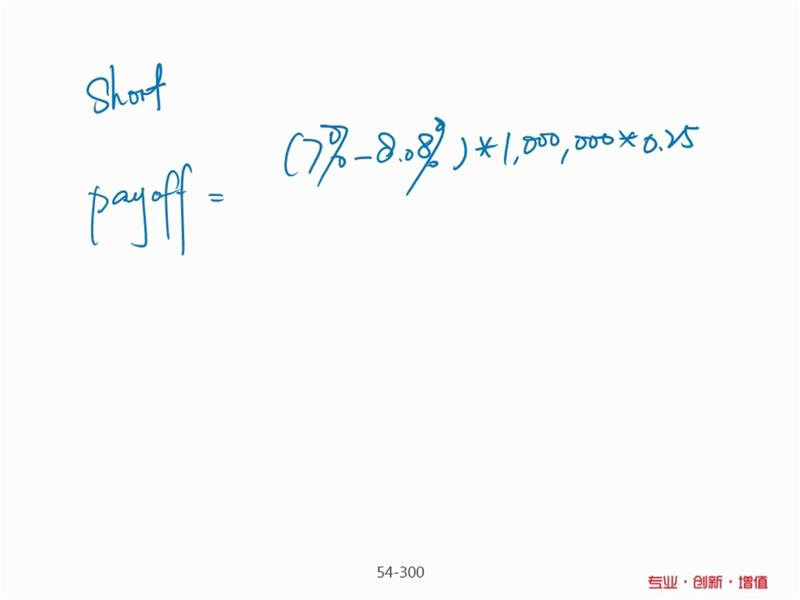 Short
payoff = (7% - 8.08%) * 1,000,000 * 0.25
54-300
专业·创新·增值